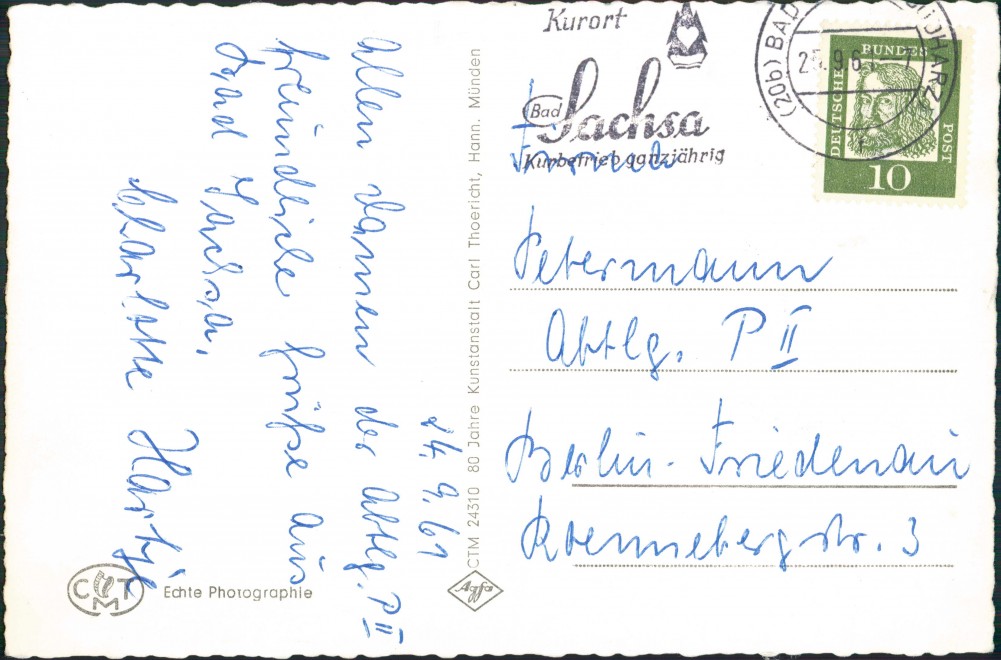 24. 9. 61
Allen Damen der Abtlg. P II
freundliche Grüße aus
Bad Sachsa,
Charlotte
CTM
Echte Photographie
CTM 24310 80 Jahre Kunstanstalt Carl Thoericht, Hann. Münden
Agfa
Kurort
Bad Sachsa
Kurbetrieb ganzjährig
(20b) BAD (SÜDHARZ)
25.9.61
DEUTSCHE BUNDES POST
10
Petermann
Abtlg. P II
Berlin-Friedenau
Roennebergstr. 3